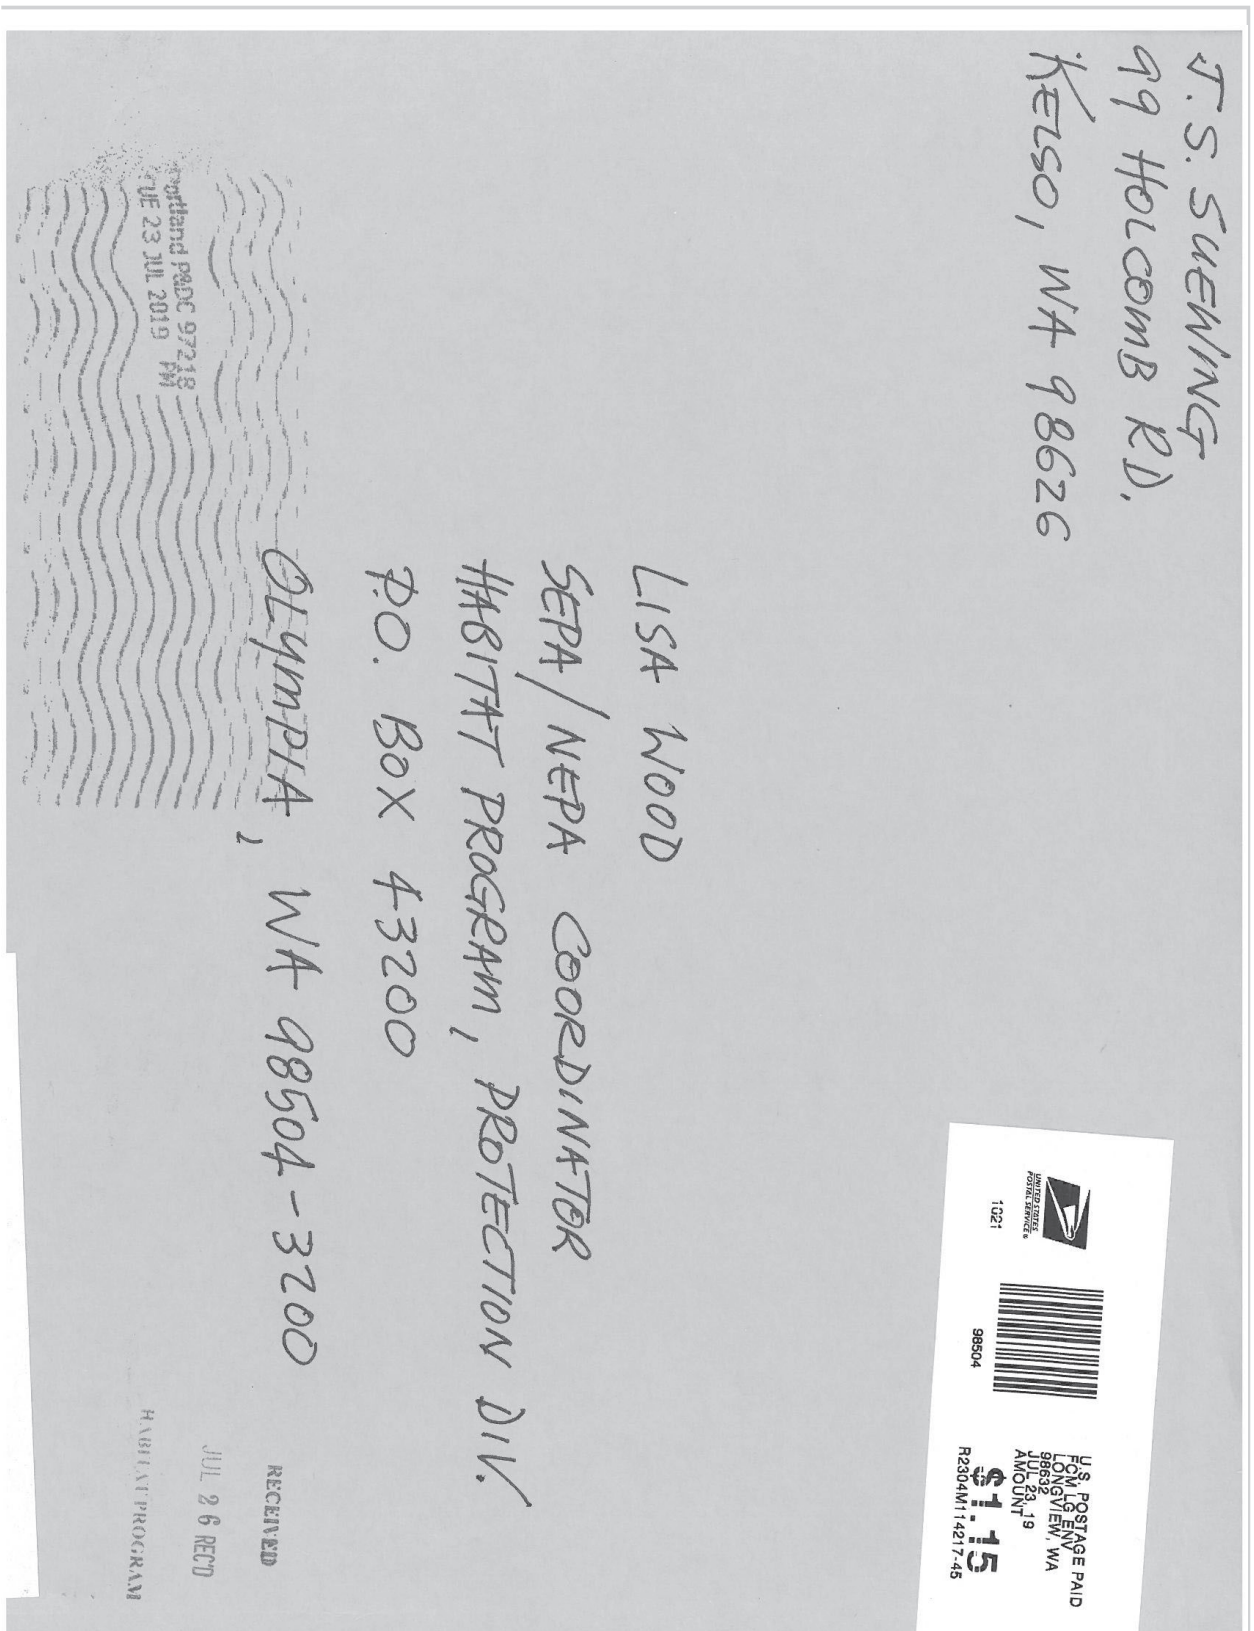 J.S. SUEWING
99 HOLCOMB RD.
KELSO, WA 98626
UNITED STATES
POSTAL SERVICE®
1021
98504
U.S. POSTAGE PAID
FCM LG ENV
LONGVIEW, WA
98632
JUL 23, 19
AMOUNT
$1.15
R2304M114217-45
LISA WOOD
SEPA/NEPA COORDINATOR
HABITAT PROGRAM, PROTECTION DIV.
P.O. BOX 43200
OLYMPIA, WA 98504-3200
Portland P&DC 97218
TUE 23 JUL 2019 PM
RECEIVED
JUL 26 REC'D
HABITAT PROGRAM